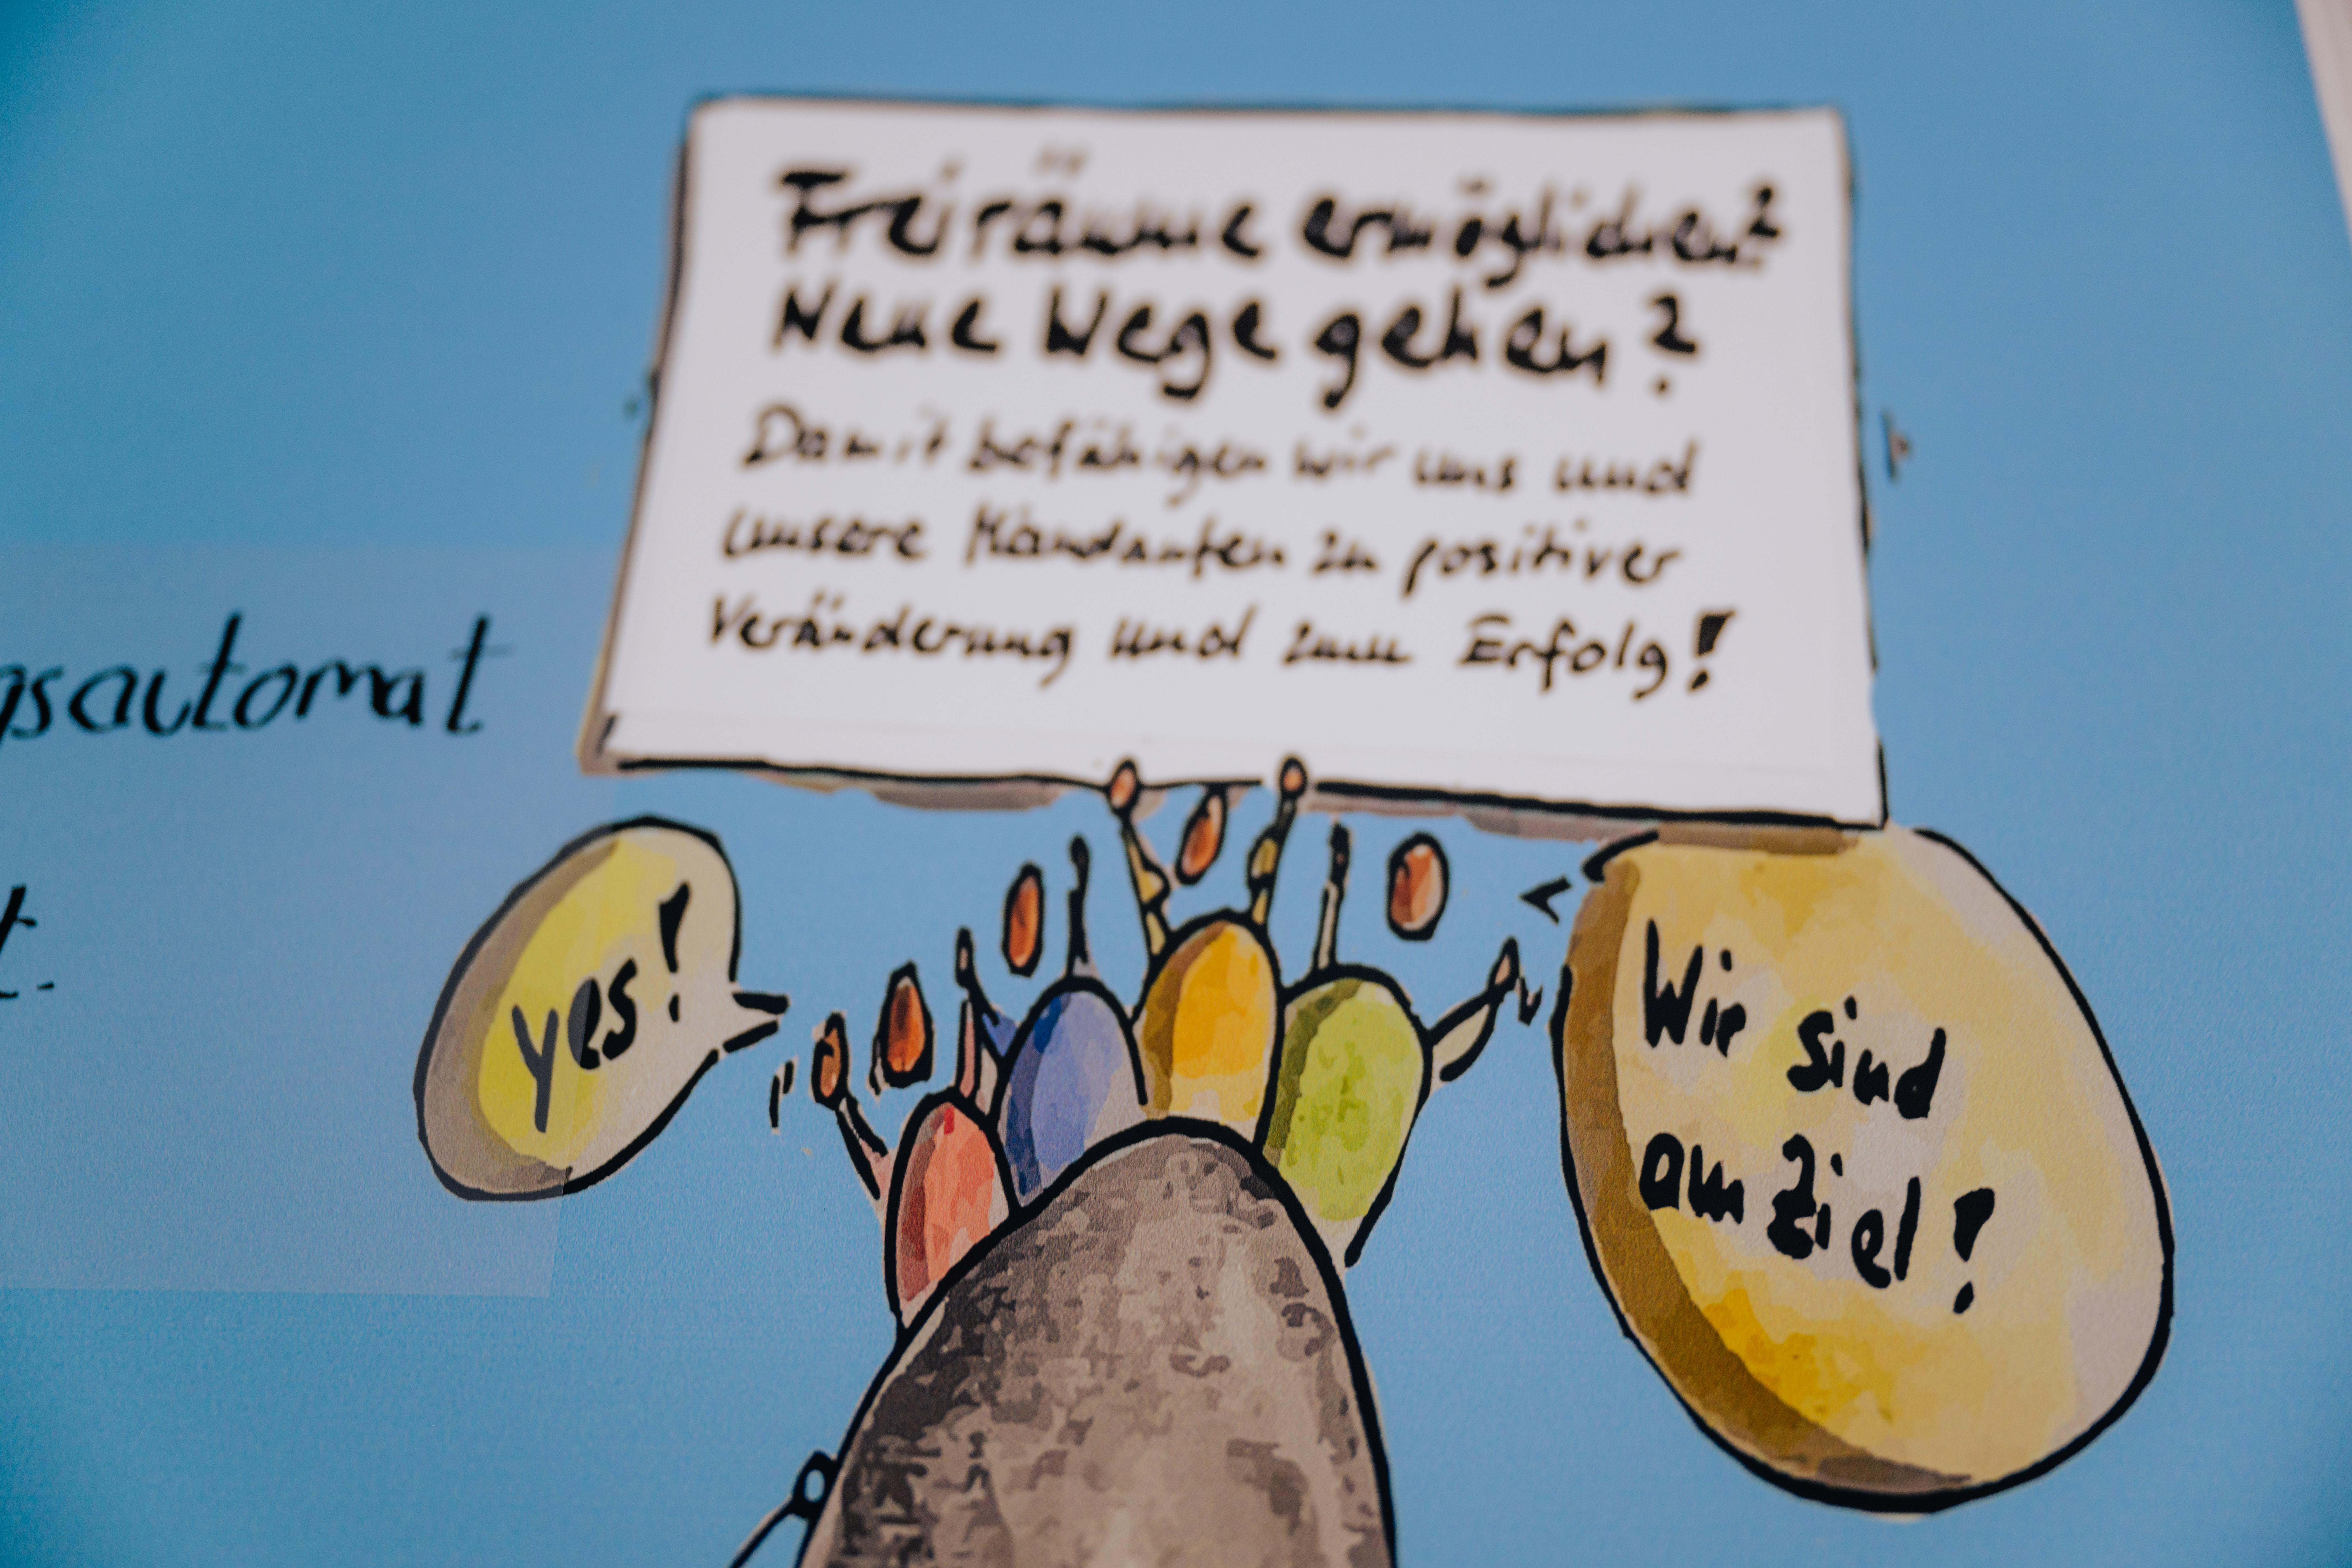 Freiräume ermöglichen?
Neue Wege gehen?
Damit befähigen wir uns und
unsere Mandanten zu positiver
Veränderung und zum Erfolg!
gsautomat
t.
yes!
Wir sind
am Ziel!